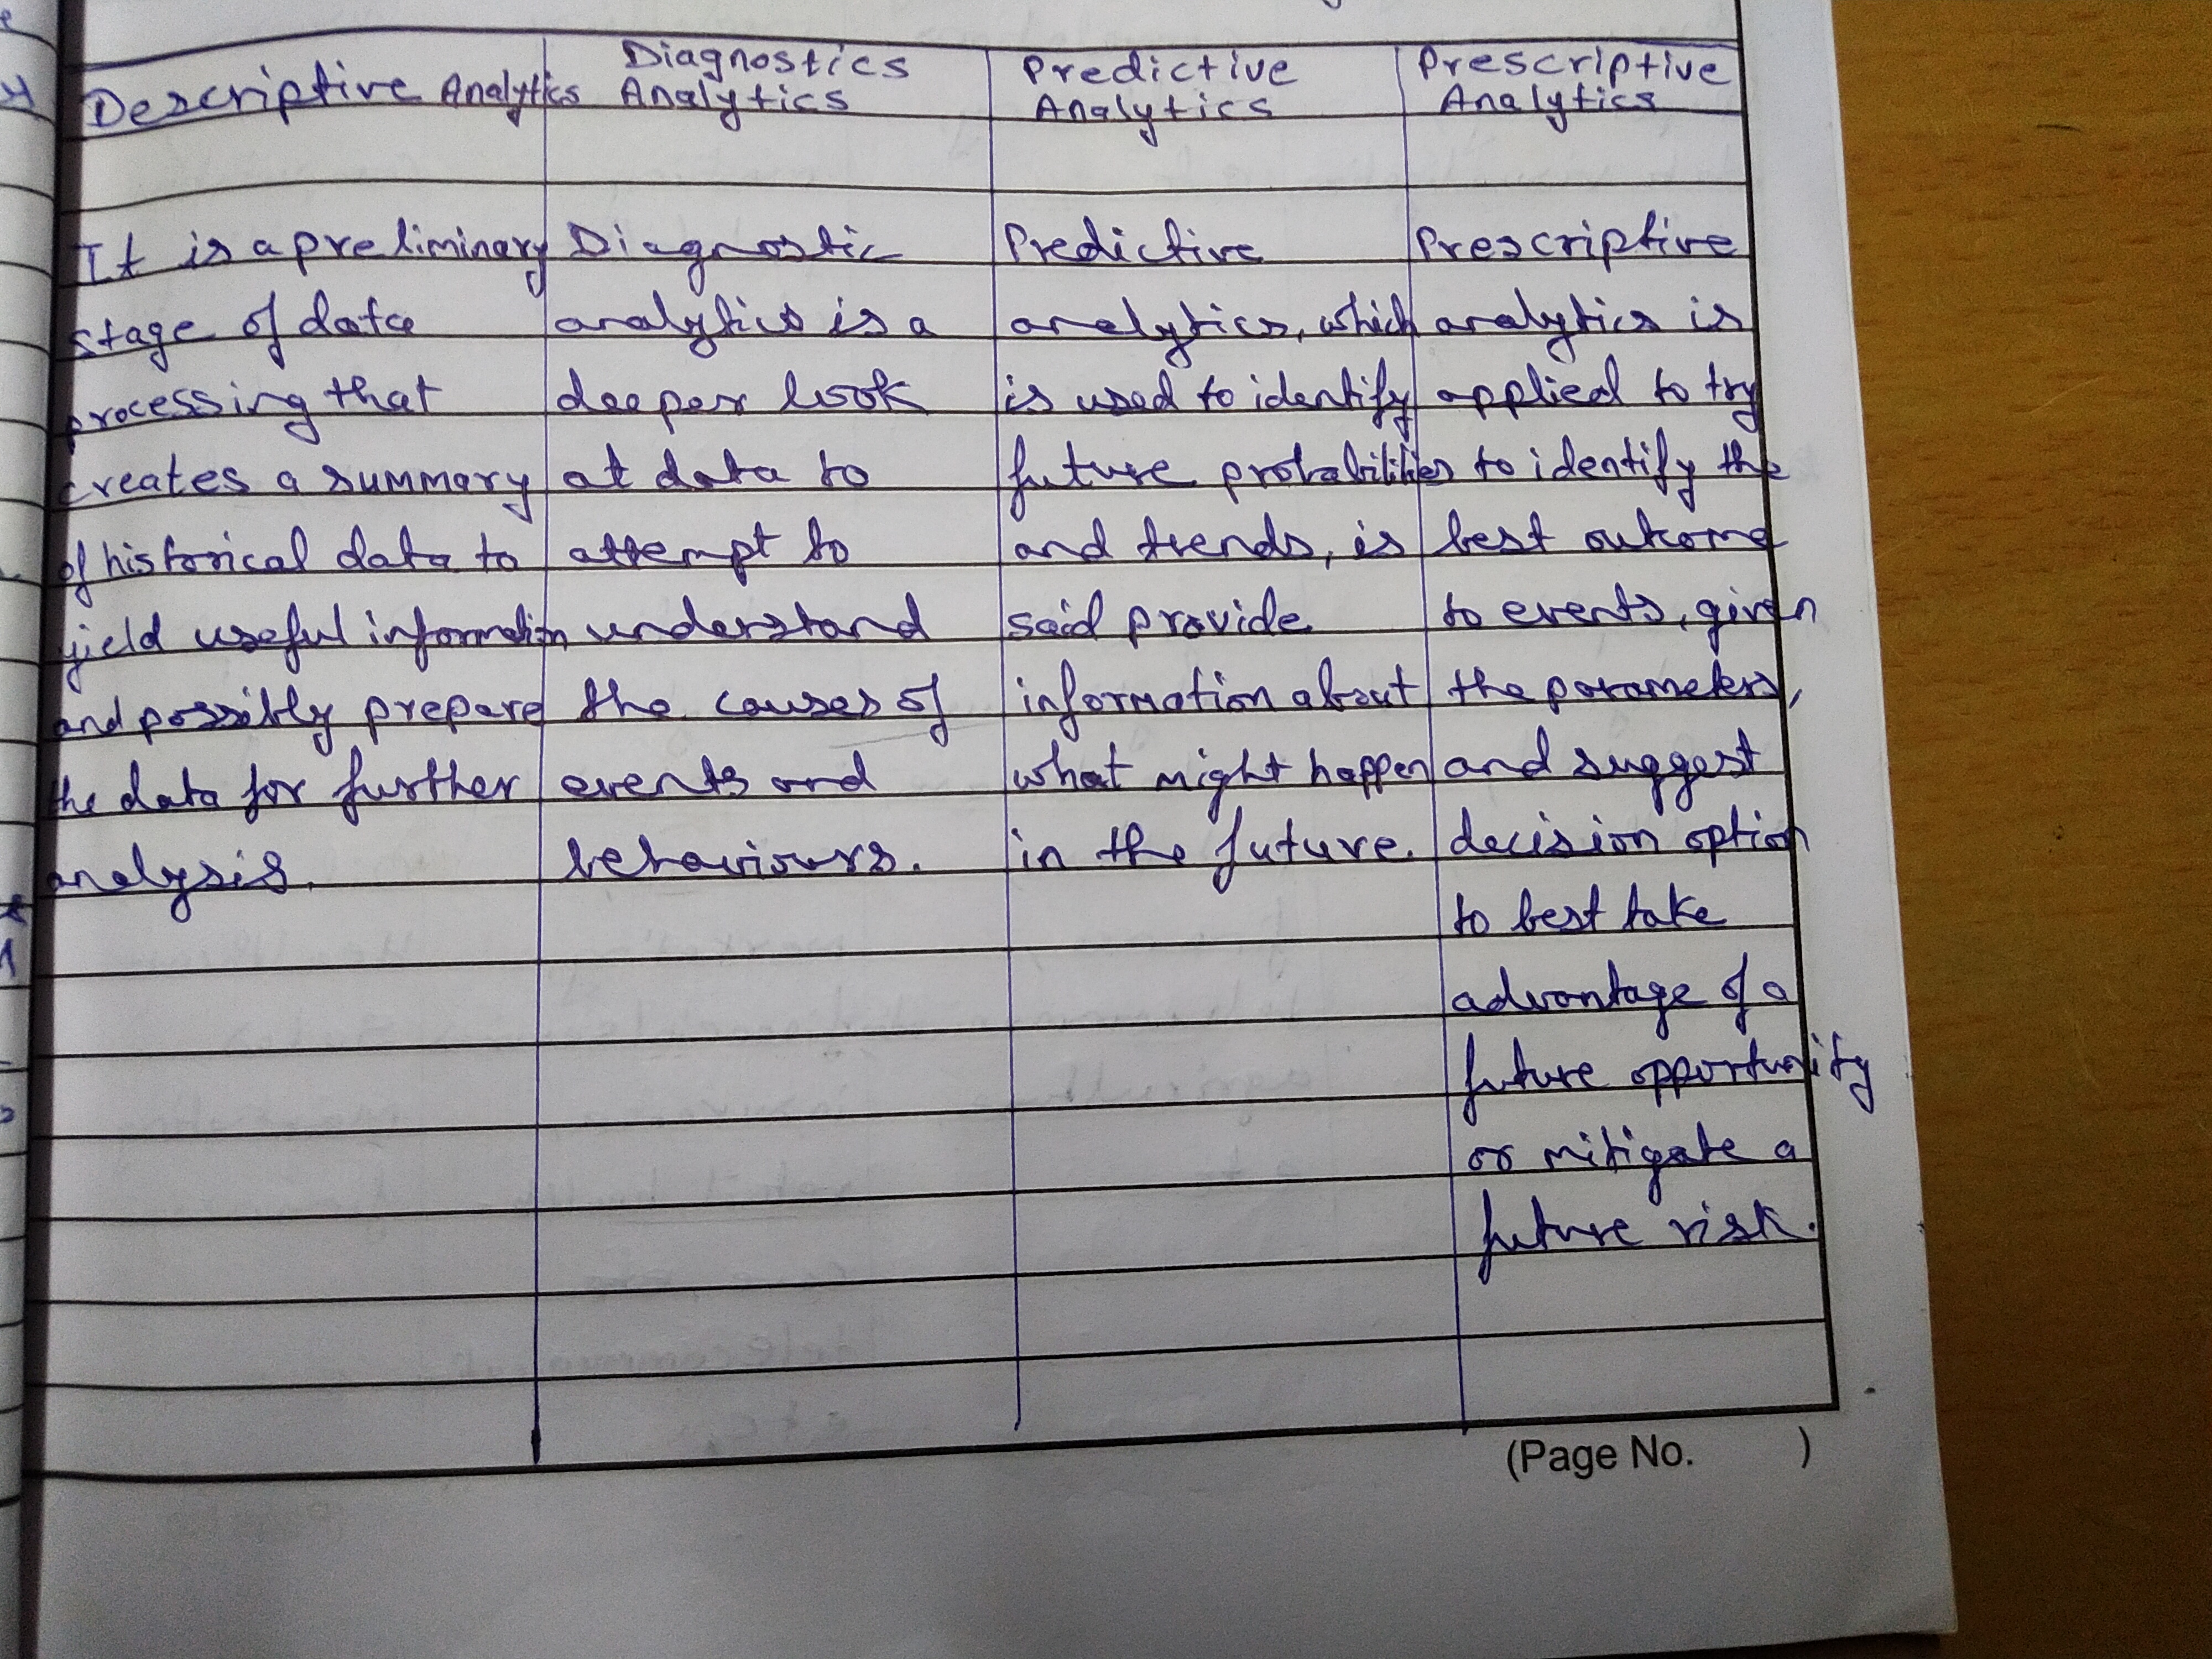 Descriptive Analytics
It is a preliminary
stage of data
processing that
creates a summary
of historical data to
yield useful information
and possibly prepare
the data for further
analysis.
Diagnostics
Analytics
Diagnostic
analytics is a
deeper look
at data to
attempt to
understand
the causes of
events and
behaviours.
Predictive
Analytics
Predictive
analytics, which
is used to identify
future probabilities
and trends, is
said provide
information about
what might happen
in the future.
Prescriptive
Analytics
Prescriptive
analytics is
applied to try
to identify the
best outcome
to events, given
the parameters,
and suggest
decision option
to best take
advantage of a
future opportunity
or mitigate a
future risk.
(Page No. )